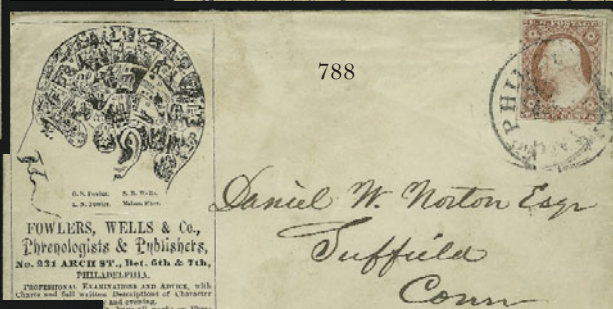 U.S. POSTAGE
788
PHIL
O. S. Fowler. S. R. Wells.
L. N. Fowler. Nelson Sizer.
FOWLERS, WELLS & Co.,
Phrenologists & Publishers,
No. 231 ARCH ST., Bet. 6th & 7th,
PHILADELPHIA.
PROFESSIONAL EXAMINATIONS AND ADVICE, with
Charts and full written Descriptions of Character
and evening.
Daniel W. Norton Esqr
Suffield
Conn